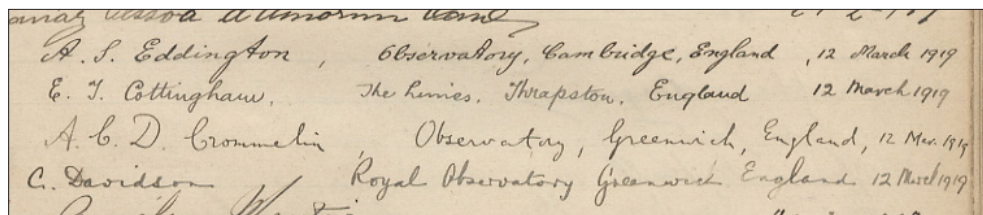 A. S. Eddington, Observatory, Cambridge, England, 12 March 1919
E. T. Cottingham, The Limes, Thrapston, England 12 March 1919
A. C. D. Crommelin, Observatory, Greenwich, England, 12 Mar. 1919
C. Davidson Royal Observatory Greenwich England 12 March 1919